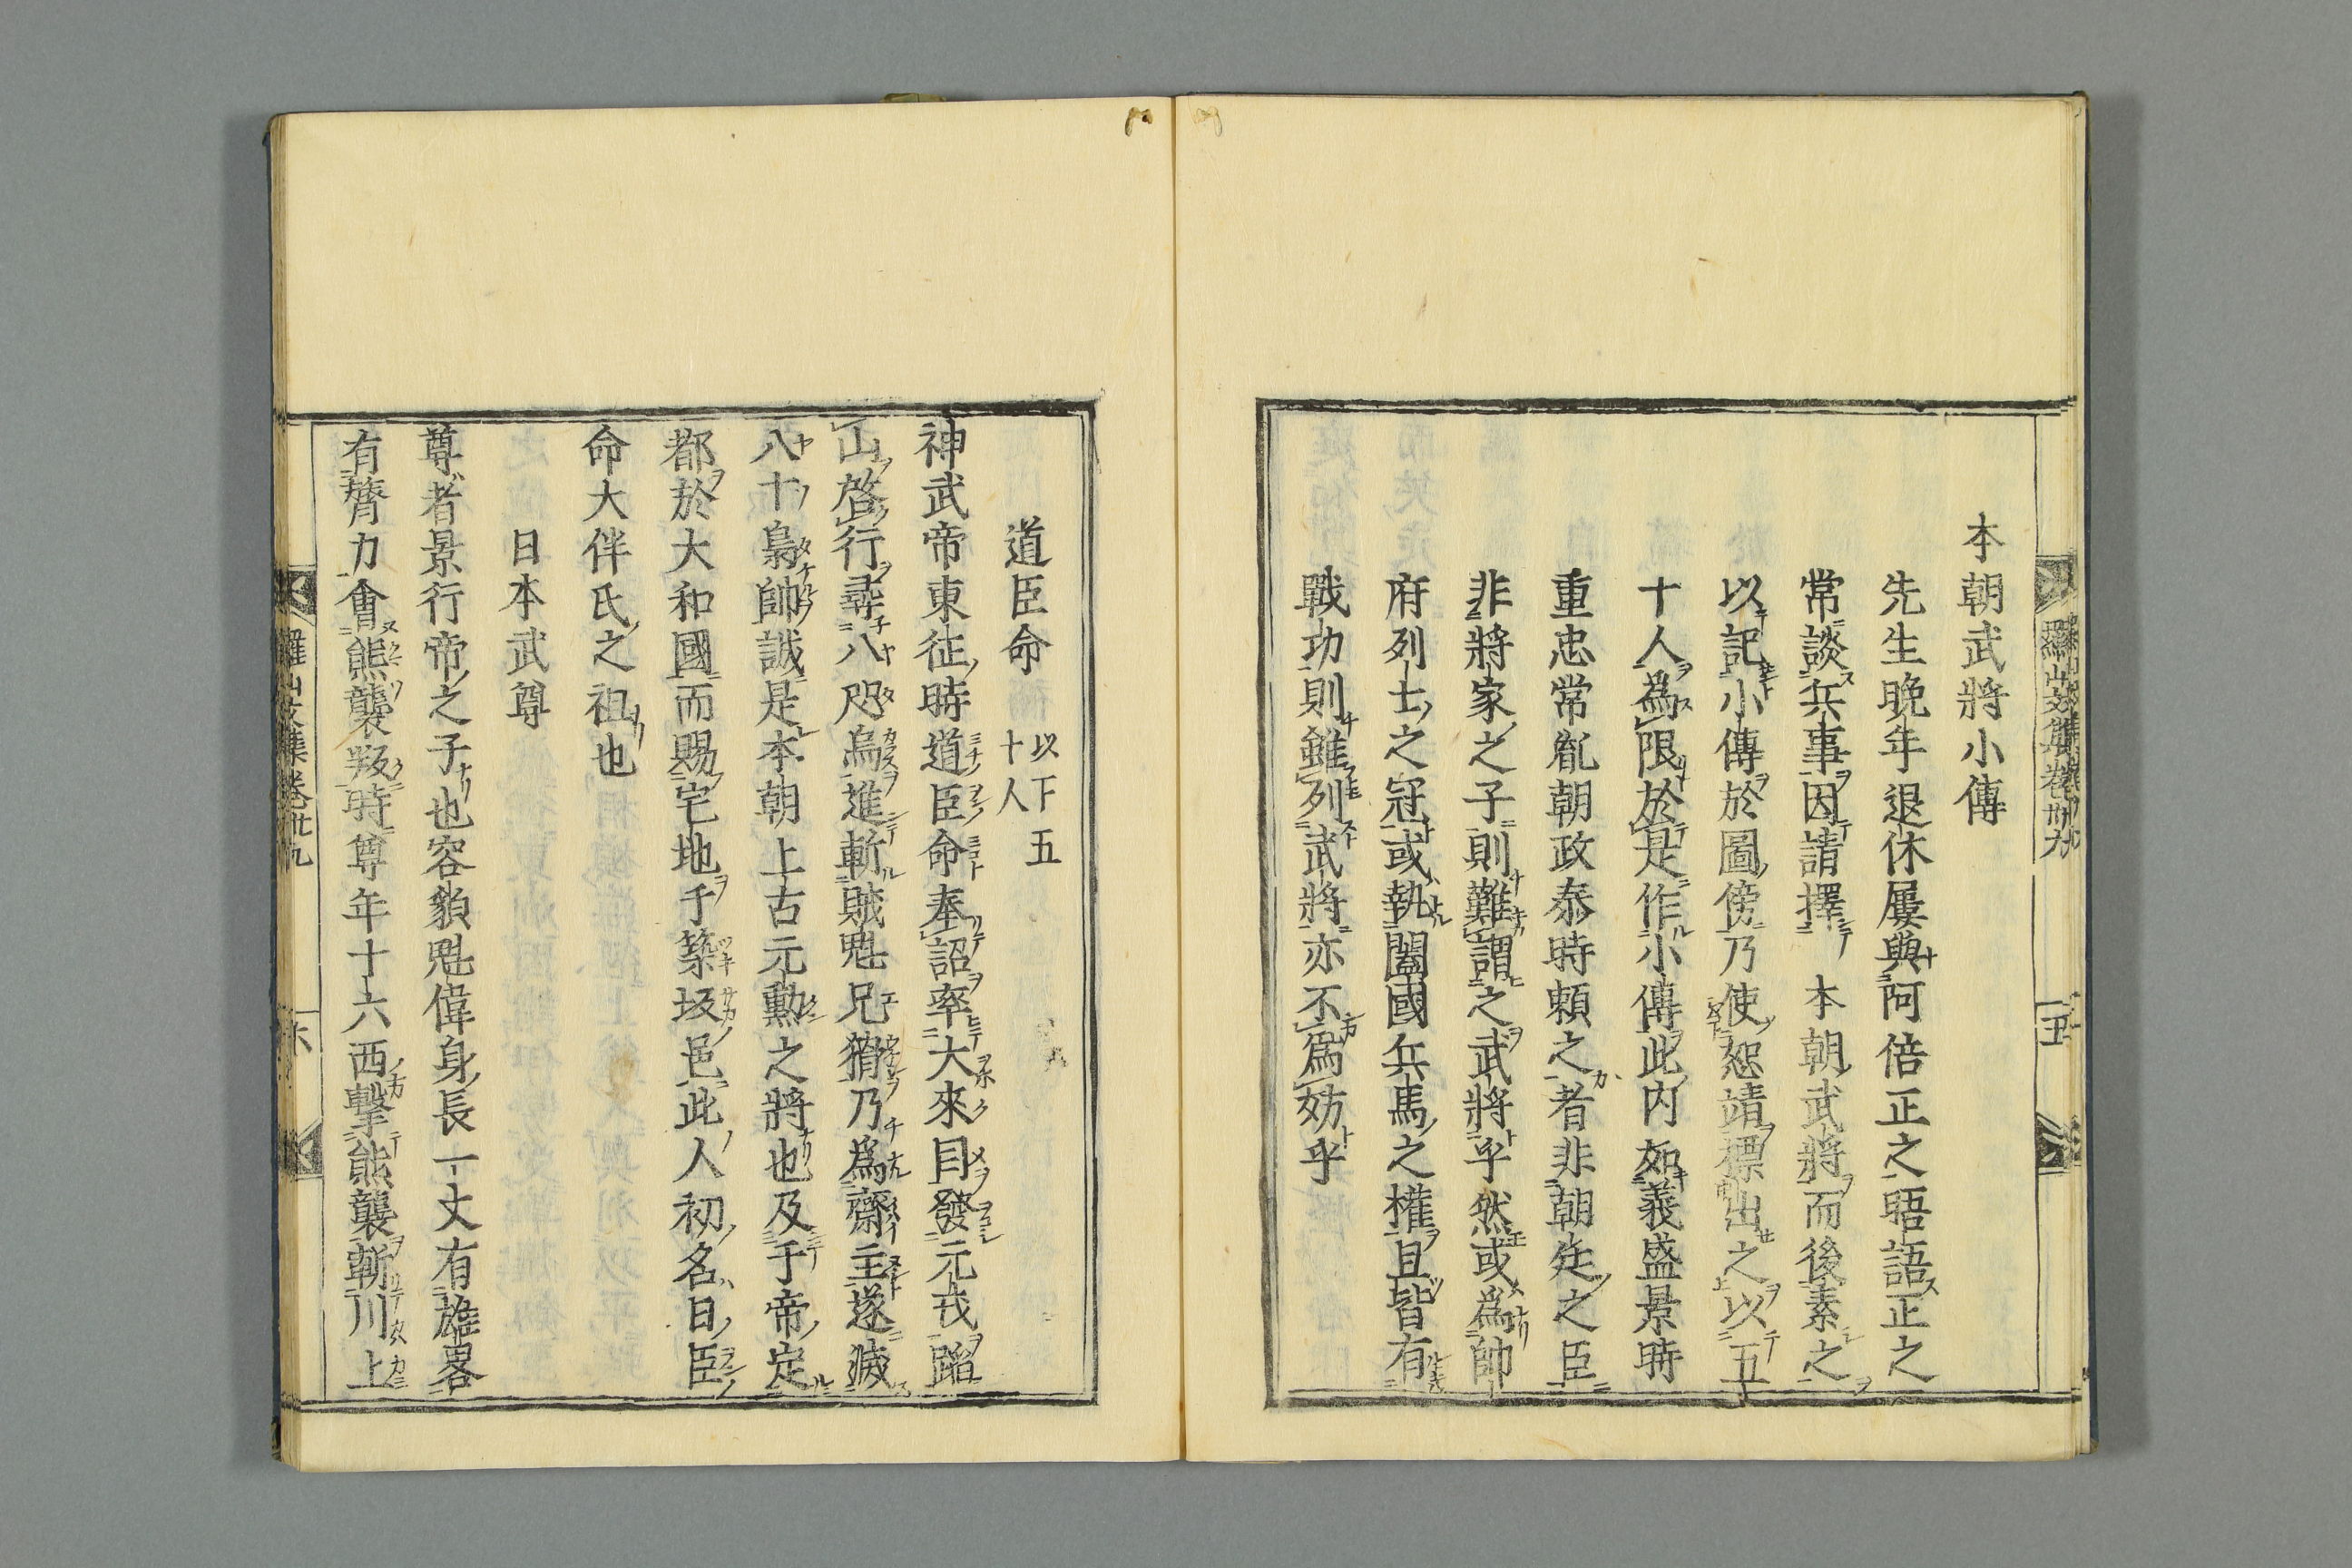 本朝武將小傳
先生晚年退休屢與阿倍正之晤語正之
常談兵事因請擇 本朝武將而後素之
以記小傳於圖傍乃使恕靖標出之以五
十人爲限於是作小傳此内如義盛景時
重忠常胤朝政泰時頼之者非朝廷之臣
非將家之子則難謂之武將乎然或爲帥
府列士之冠或執闔國兵馬之權且皆有
戰功則雖列武將亦不爲妨乎
道臣命 以下五十人
神武帝東征時道臣命奉詔率大來目發元戎蹈
山啓行尋八咫烏進斬賊魁兄猾乃爲齋主遂滅
八十梟帥誠是本朝上古元勳之將也及于帝定
都於大和國而賜宅地于築坂邑此人初名日臣
命大伴氏之祖也
日本武尊
尊者景行帝之子也容貌魁偉身長一丈有雄畧
有膂力會熊襲叛時尊年十六西擊熊襲斬川上
羅山文集卷卅九